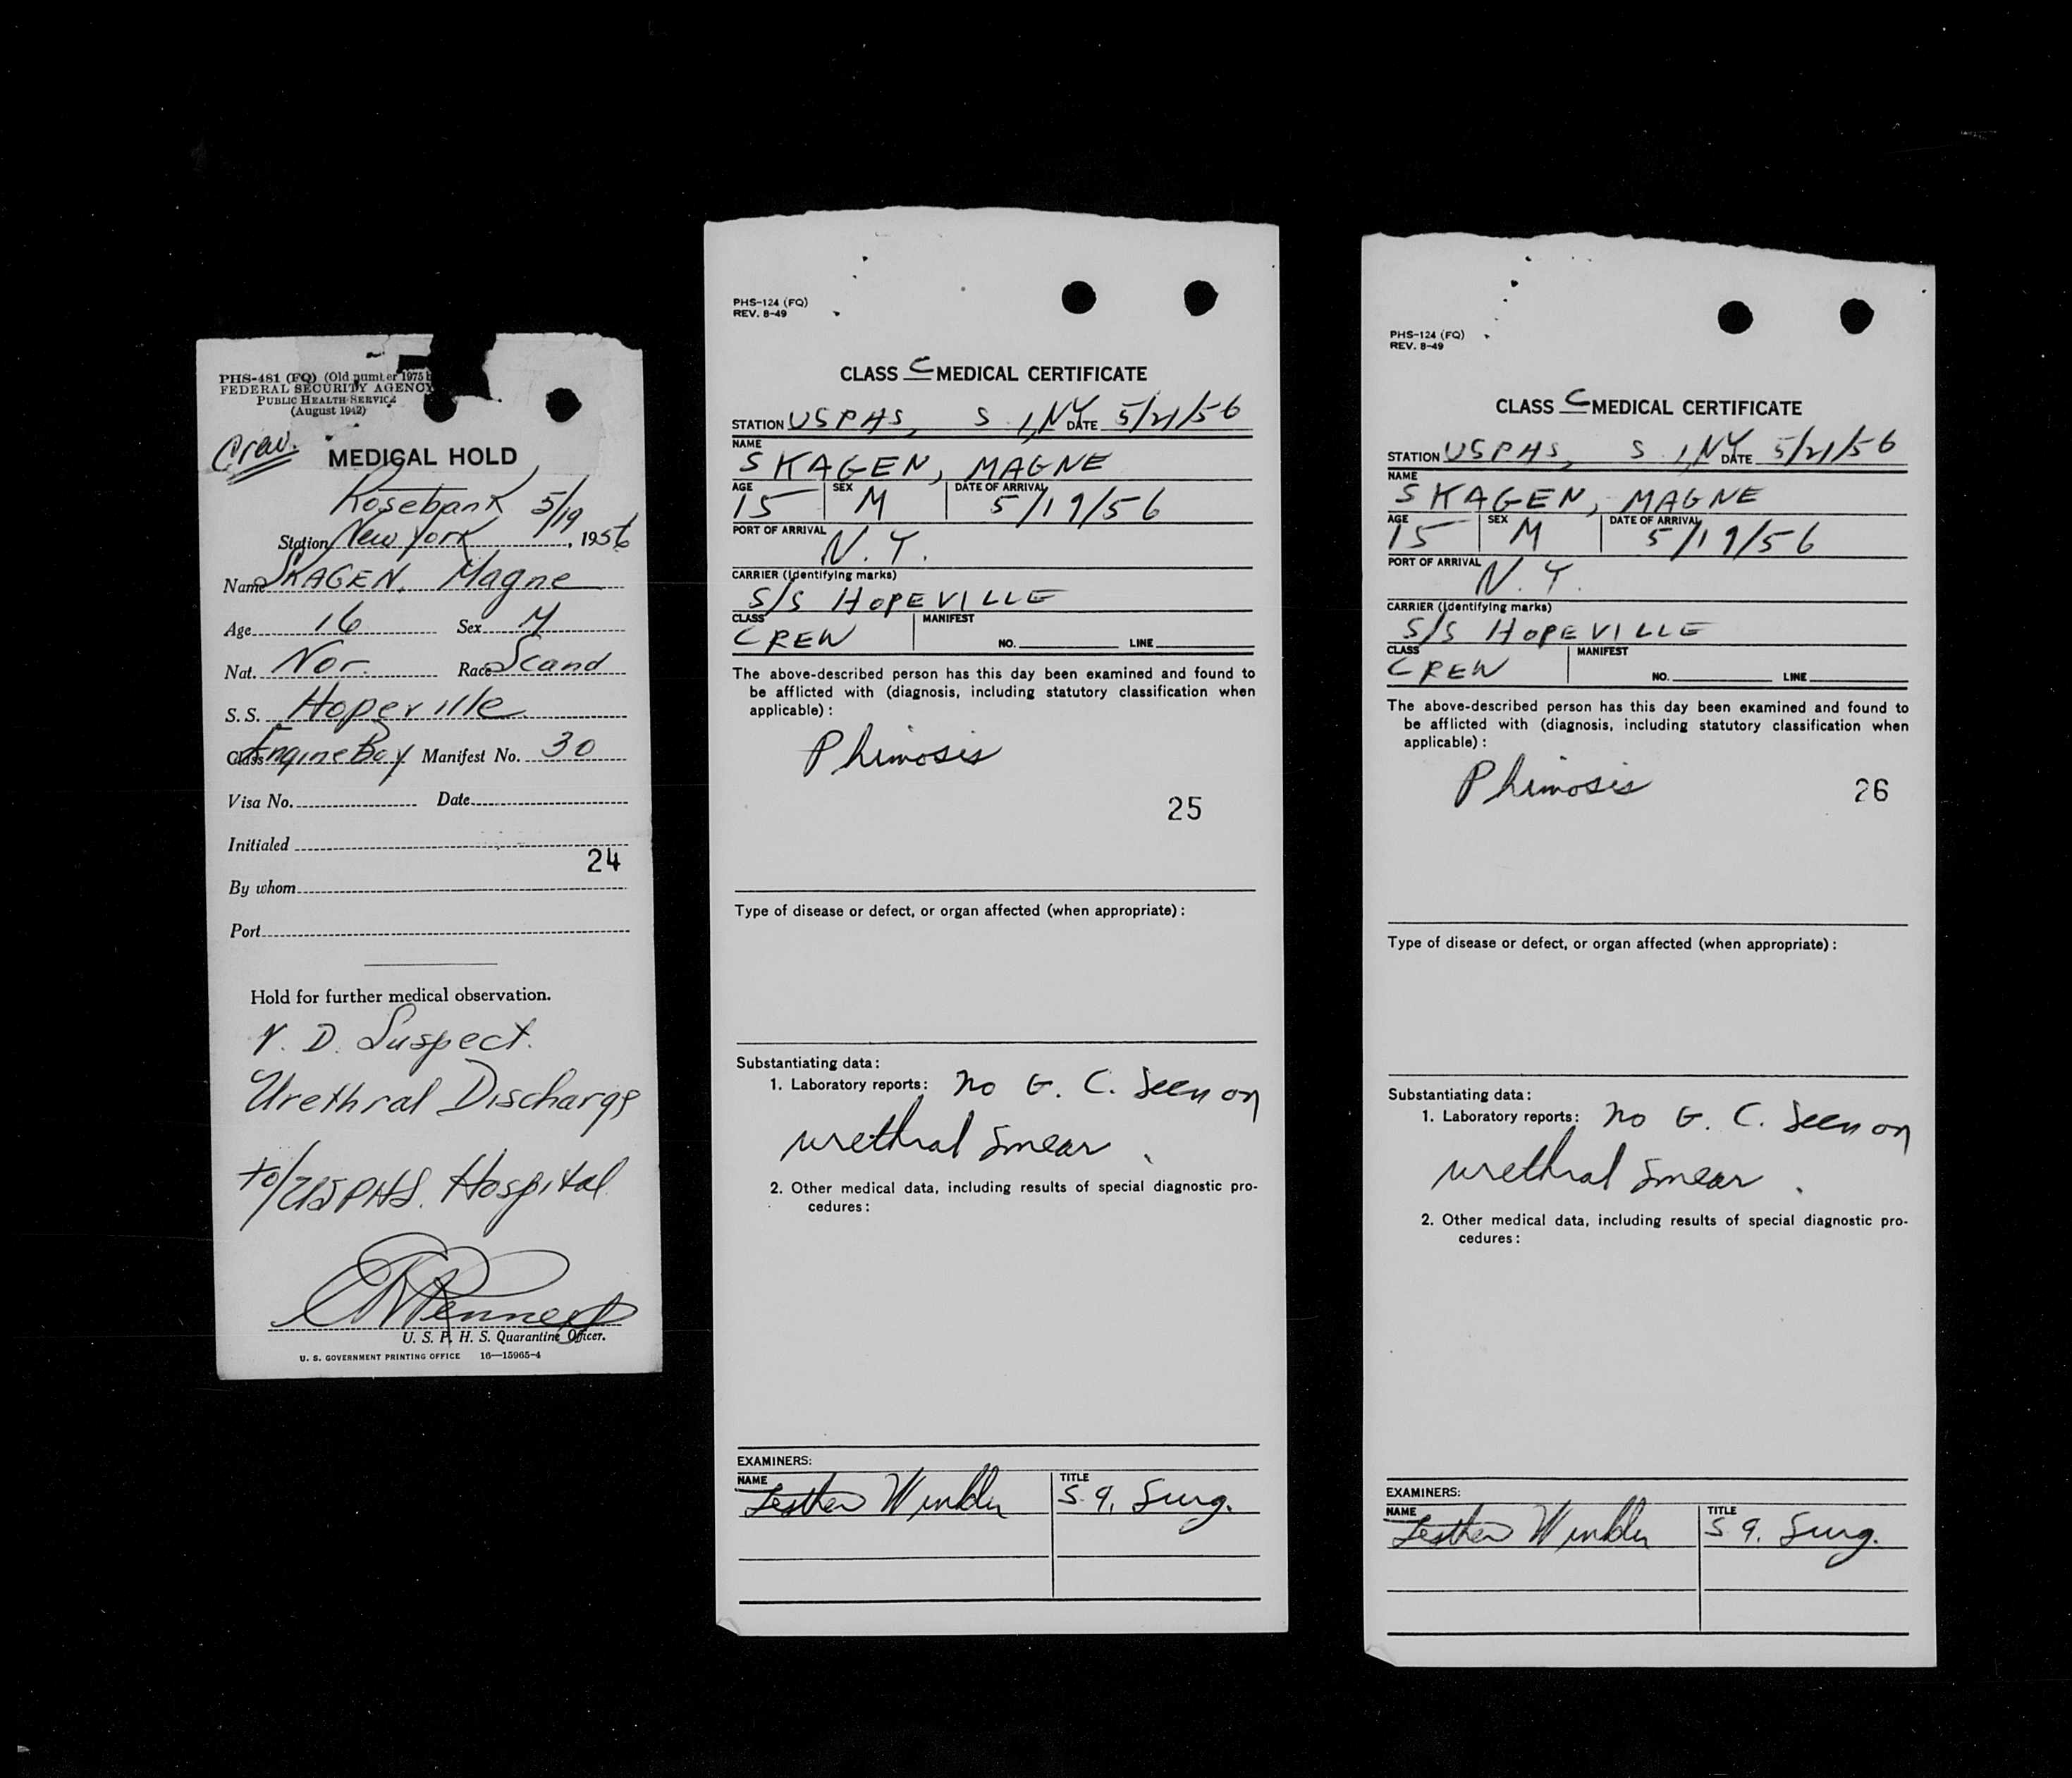 PHS-481 (FQ) (Old number 1975
FEDERAL SECURITY AGENCY
PUBLIC HEALTH SERVICE
(August 1942)
Crew.
MEDICAL HOLD
Rosebank 5/19
Station New York, 1956
Name SKAGEN, Magne
Age 16 Sex M
Nat. Nor. Race Scand
S. S. Hopeville
Class Engine Boy Manifest No. 30
Visa No. Date
Initialed
24
By whom
Port
Hold for further medical observation.
V. D. Suspect.
Urethral Discharge
to/USPHS. Hospital
U. S. P. H. S. Quarantine Officer.
U. S. GOVERNMENT PRINTING OFFICE 16—15965-4
PHS-124 (FQ)
REV. 8-49
CLASS C MEDICAL CERTIFICATE
STATION USPHS, S I, NY DATE 5/21/56
NAME
SKAGEN, MAGNE
AGE SEX DATE OF ARRIVAL
15 M 5/19/56
PORT OF ARRIVAL
N.Y.
CARRIER (Identifying marks)
S/S HOPEVILLE
CLASS MANIFEST
CREW NO. LINE
The above-described person has this day been examined and found to
be afflicted with (diagnosis, including statutory classification when
applicable):
Phimosis
25
Type of disease or defect, or organ affected (when appropriate):
Substantiating data:
1. Laboratory reports: No G. C. seen on
urethral smear.
2. Other medical data, including results of special diagnostic pro-
cedures:
EXAMINERS:
NAME TITLE
Winkler S. A. Surg.
PHS-124 (FQ)
REV. 8-49
CLASS C MEDICAL CERTIFICATE
STATION USPHS, S I, NY DATE 5/21/56
NAME
SKAGEN, MAGNE
AGE SEX DATE OF ARRIVAL
15 M 5/19/56
PORT OF ARRIVAL
N.Y.
CARRIER (Identifying marks)
S/S HOPEVILLE
CLASS MANIFEST
CREW NO. LINE
The above-described person has this day been examined and found to
be afflicted with (diagnosis, including statutory classification when
applicable):
Phimosis
26
Type of disease or defect, or organ affected (when appropriate):
Substantiating data:
1. Laboratory reports: No G. C. seen on
urethral smear.
2. Other medical data, including results of special diagnostic pro-
cedures:
EXAMINERS:
NAME TITLE
Winkler S A. Surg.